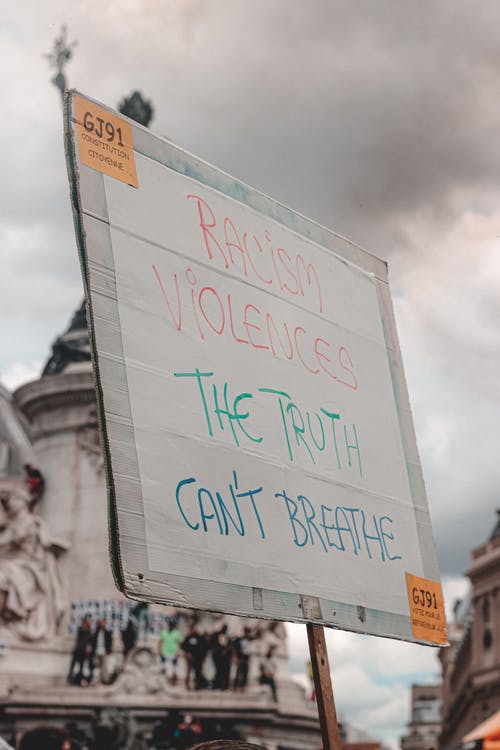 GJ91
CONSTITUTION
CITOYENNE
RACiSM
ViOLENCES
THE TRUTH
CAN'T BREATHE
GJ91